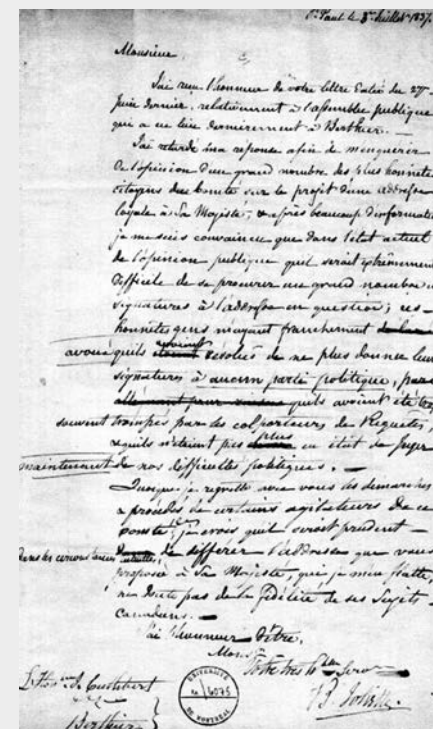 St Paul le 3me Juillet 1837.
Monsieur
J'ai reçu l'honneur de votre lettre datée du 27
Juin dernier, relativement à l'assemblée publique
qui a eu lieu dernierement à Berthier. —
J'ai retardé ma réponse afin de m'enquerir
De l'opinion d'un grand nombre des plus honnêtes
citoyens du comté sur le projet d'une addresse
loyale à Sa Majesté, & après beaucoup d'informat
je me suis convaincu que dans l'état actuel
de l'opinion publique qu'il serait extrêmement
difficile de se procurer un grand nombre
signatures à l'addresse en question; ces
honnêtes gens m'ayant franchement
avoué qu'ils avoient résolus de ne plus donner leur
signatures à aucun parti politique,
qu'ils avoient été trop
souvent trompés par des colporteurs de Requêtes,
& quils n'étoient pas plus en état de juger
maintenant de nos difficultés politiques. —
Quoique je regrette avec vous les demarches
& procédés de certains agitateurs de ce
comté, je crois qu'il seroit prudent —
dans les circonstances actuelles, de differer l'addresse que vous
proposé à Sa Majesté, qui je m'en flatte,
ne doute pas de la fidélité de ses Sujets
Canadiens. —
J'ai l'honneur d'être,
Monsr
Votre tres hble Servr
B. Joliette
L'Honble J. Cuthbert
Berthier
UNIVERSITÉ
DE MONTRÉAL